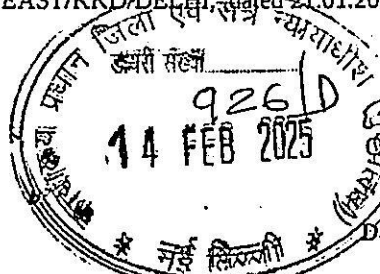 EAST/KRD/DELHI, dated 21.01.20
प्रधान जिला एवं सत्र न्यायाधीश
डायरी संख्या
926/D
14 FEB 2025
नई दिल्ली
D